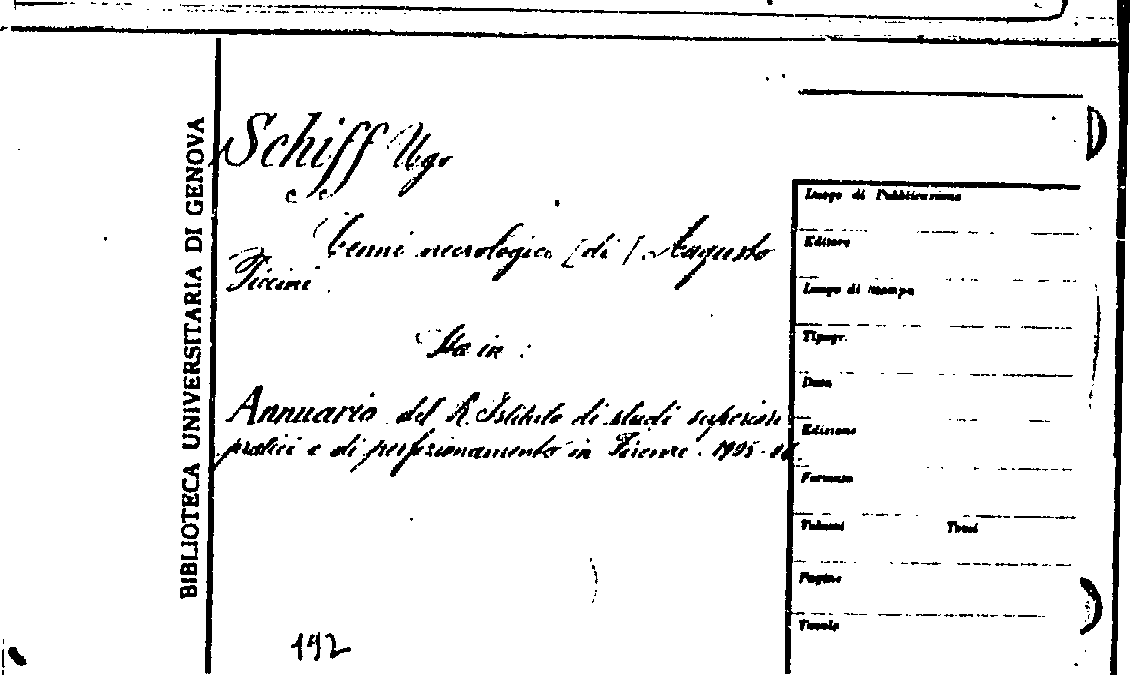 BIBLIOTECA UNIVERSITARIA DI GENOVA
Schiff Ugo
Cenni necrologici [di] Augusto
Piccini
Sta in :
Annuario del R. Istituto di studi superiori
pratici e di perfezionamento in Firenze. 1905-06.
192
Luogo di Pubblicazione
Editore
Luogo di stampa
Tipogr.
Data
Edizione
Formato
Volumi Tomi
Pagine
Tavole